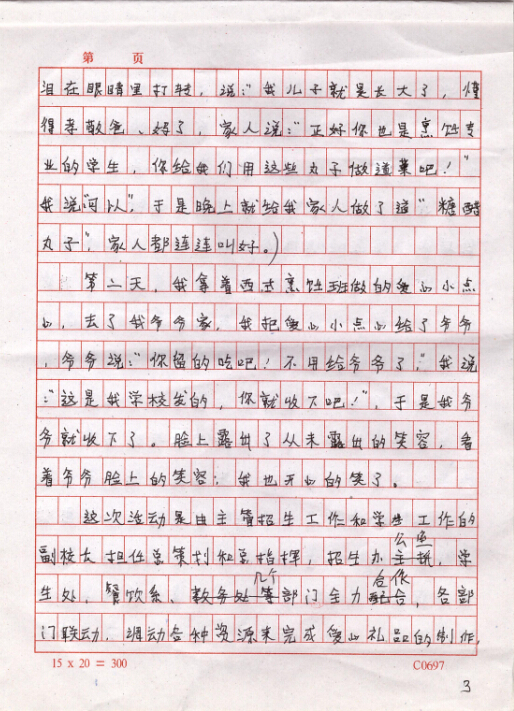 第　页
泪在眼睛里打转，说："我儿子就是长大了，懂
得孝敬爸、妈了，家人说："正好你也是烹饪专
业的学生，你给我们用这些丸子做道菜吧！"
我说"可以"，于是晚上就给我家人做了道"糖醋
丸子"，家人都连连叫好。）
第二天，我拿着西式烹饪班做的爱心小点
心，去了我爷爷家，我把爱心小点心给了爷爷
，爷爷说："你留的吃吧！不用给爷爷了，"我说
："这是我学校发的，你就收下吧！"，于是我爷
爷就收下了。脸上露出了从未露出的笑容，看
着爷爷脸上的笑容，我也开心的笑了。
这次活动是由主管招生工作和学生工作的
副校长担任总策划和总指挥，招生办主抓，学
生处，餐饮系、教务处等几个部门全力配合合作，各部
门联动，调动各种资源来完成爱心礼品的制作，
15 x 20 = 300
C0697
3